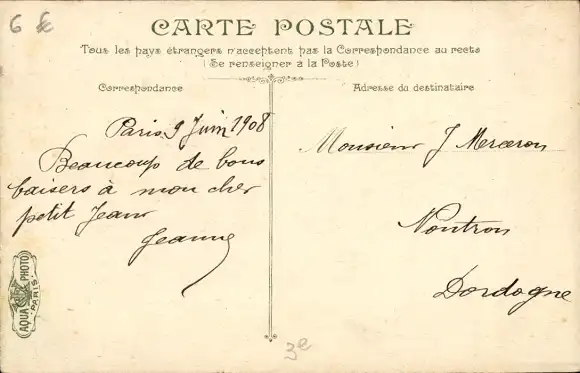 6 €
CARTE POSTALE
Tous les pays étrangers n'acceptent pas la Correspondance au recto
(Se renseigner à la Poste)
Correspondance
Adresse du destinataire
Paris 9 Juin 1908
Beaucoup de bons
baisers à mon cher
petit Jean
Jeanne
Monsieur J Merceron
Nontron
Dordogne
AQUA PHOTO
PARIS
3e